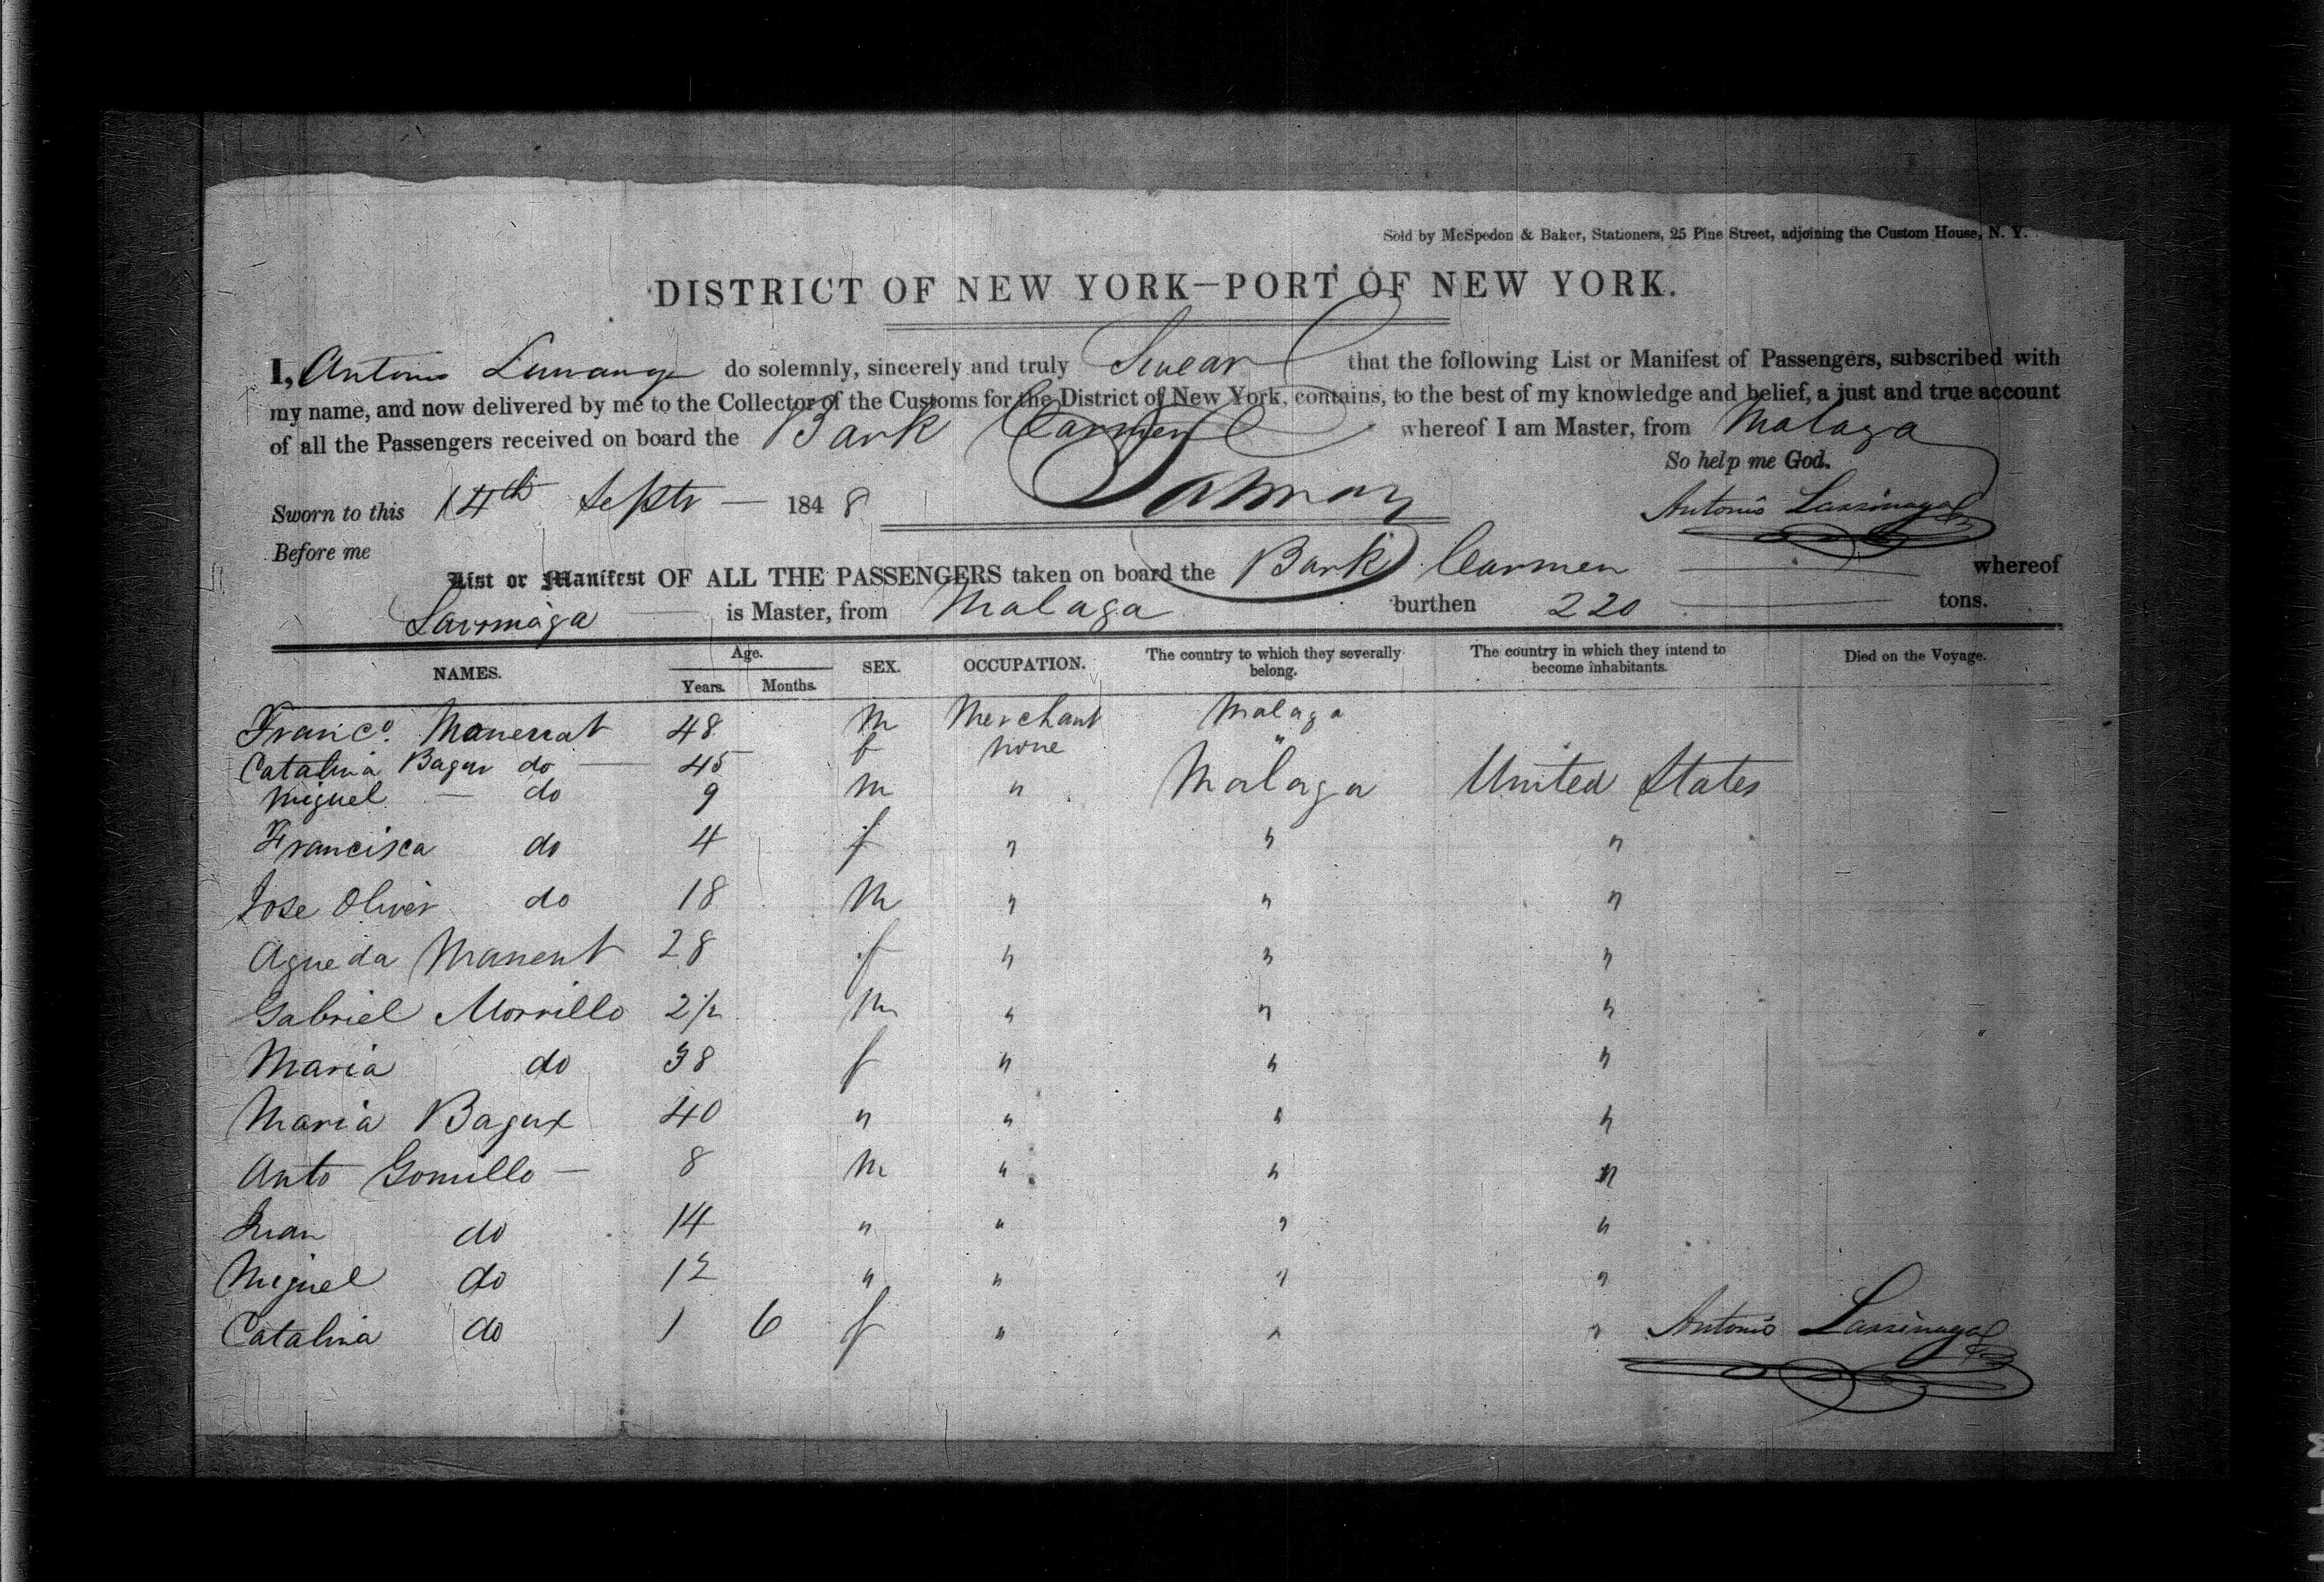 Sold by McSpedon & Baker, Stationers, 25 Pine Street, adjoining the Custom House, N. Y.
DISTRICT OF NEW YORK—PORT OF NEW YORK.
I, Antonio do solemnly, sincerely and truly Swear that the following List or Manifest of Passengers, subscribed with
my name, and now delivered by me to the Collector of the Customs for the District of New York, contains, to the best of my knowledge and belief, a just and true account
of all the Passengers received on board the Bark Carmen whereof I am Master, from Malaga
So help me God.
Sworn to this 14th Septr — 1848 Antonio
Before me
List or Manifest OF ALL THE PASSENGERS taken on board the Bark Carmen whereof
is Master, from Malaga burthen 220 tons.
NAMES. Age. Years. Months. SEX. OCCUPATION. The country to which they severally belong. The country in which they intend to become inhabitants. Died on the Voyage.
Franco. 48 M Merchant Malaga
Catalina Bagur do — 45 f none "
Miguel — do 9 M " Malaga United States
Francisca do 4 f " " "
Jose Oliver do 18 M " " "
Agueda Manent 28 f " " "
Gabriel Morrillo 2½ M " " "
Maria do 38 f " " "
Maria Bagur 40 " " " "
Anto Gomillo — 8 M " " "
Juan do 14 " " " "
Miguel do 12 " " " "
Catalina do 1 6 f " " "
Antonio